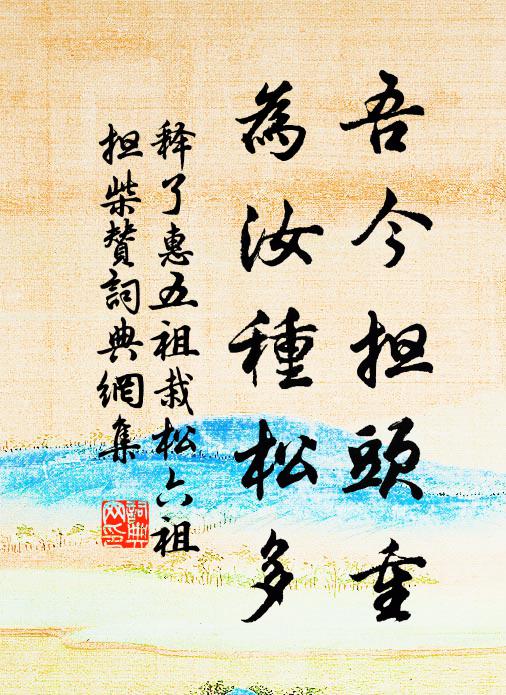 吾今担頭重
為汝種松多
释了惠五祖栽松六祖
担柴赞詞典網集
詞典網印